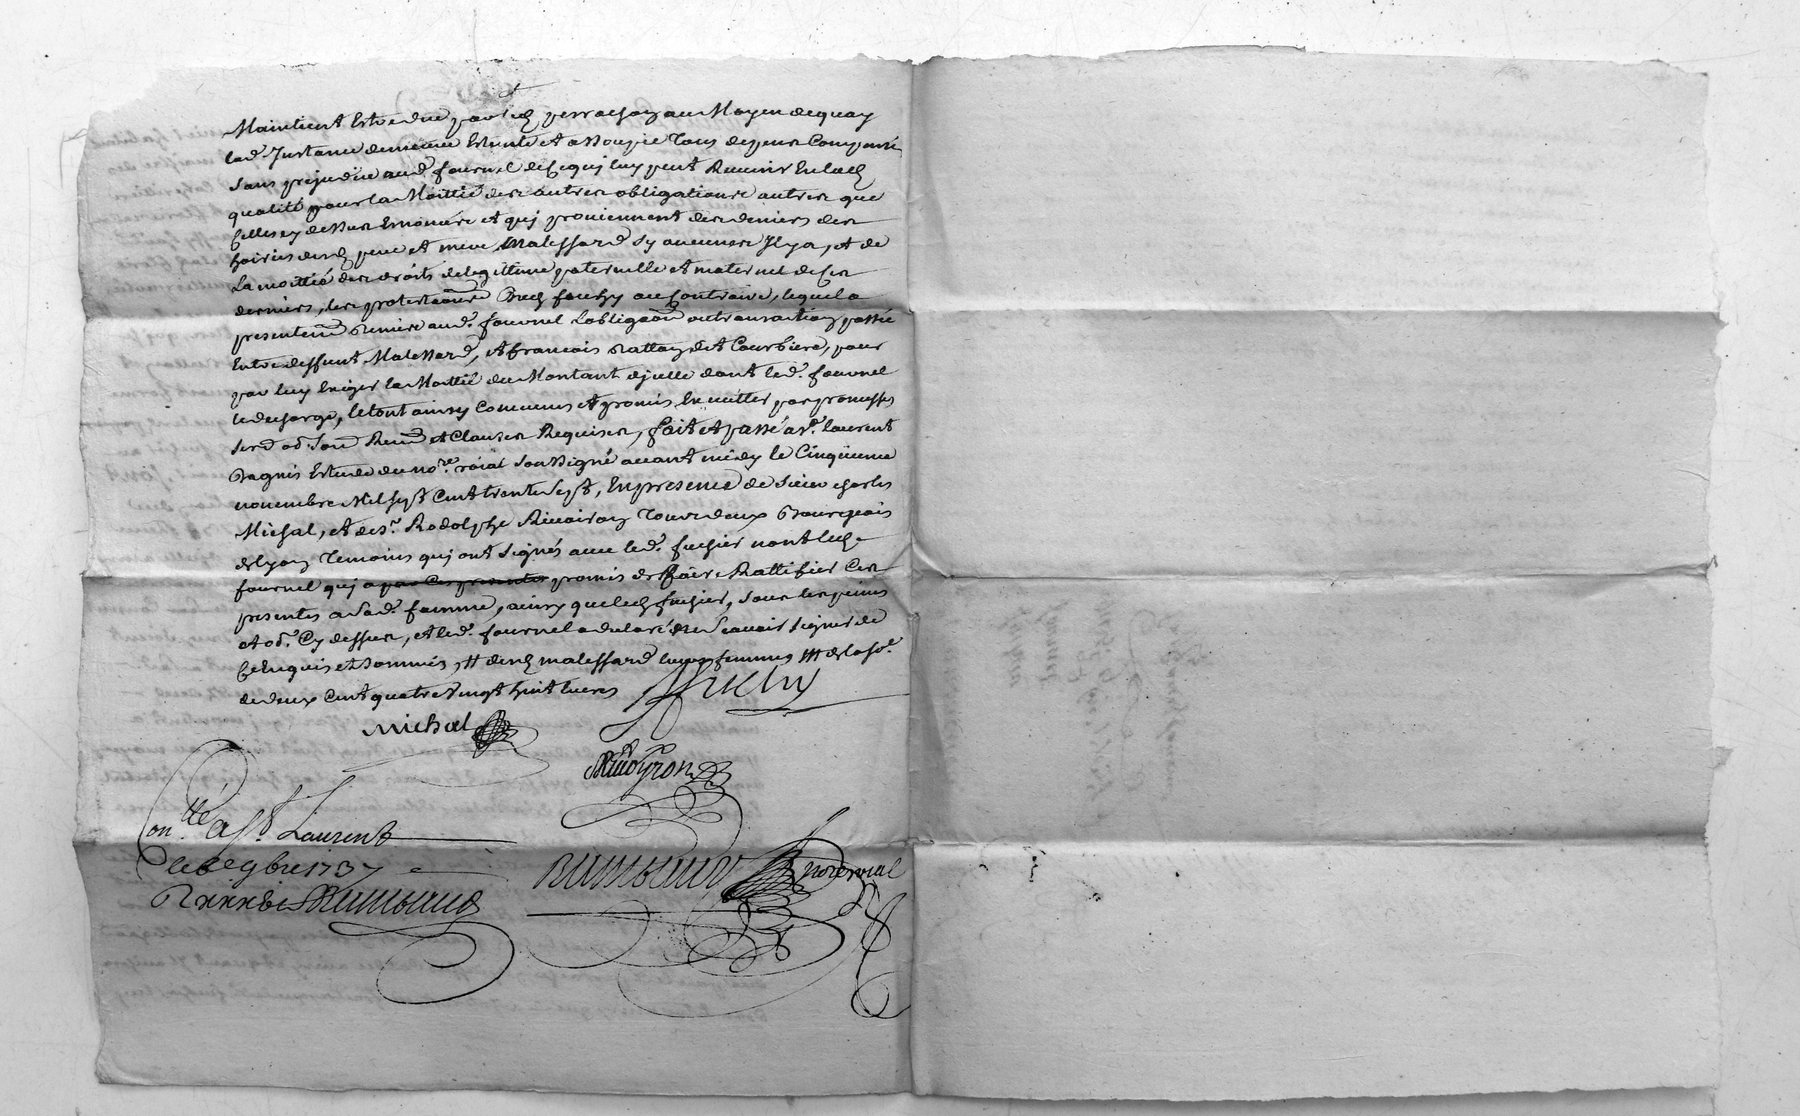 Maintient Estre due par led perrachon au Moyen dequoy
lad. Instance demeure Esteinte et assoupie tous depens Compensés
sans prejudice aud. fournel de Ce qui luy peut Revenir En lad
qualité pour la Moittié des autres obligations autres que
Celles cy dessus Enoncées et qui proviennent des deniers des
hoiries desd pere et mere Malessard sy aucunes Il y a, et de
La moittié des droits de legittime paternelle et maternel de Ces
derniers, les protestaons dud fuchy au Contraire, lequel a
presentemt Remis aud. fournel L'obligaon ou transaction passée
Entre deffunt Malessard, et francois rattay dit Courbiere, pour
par luy Exiger la Moittié du Montant d'jcelle dont led. fournel
le decharge, le tout ainsy Convenus et promis Executter par promesses
sermt obd. soum Renon et Clauses Requises, fait et passé a st. laurent
dagnis Estude du nore. roial soussigné avant midy le Cinquieme
novembre Mil sept Cent trente sept, En presence de sieur charles
Michal, et de sr. Rodolphe Rivoiron tous deux Bourgeois
de lyon temoins qui ont signés avec led. fuchier non led.
fournel qui a par Ces presentes promis de faire Rattifier Ces
presentes a Sad. famme, ainsy que led fuchier, sous les peines
et obd. Cy dessus, et led. fournel a declaré ne scavoir signer de
Ce Enquis et sommés, # desd malessard leurs femmes ## de la so.
de deux Cent quatre vingt huit livres
fuchy
Michal
Rivoyron
Con.llé a St Laurent
le 9bre 1737
Rimbaud
Rimbaud
nore roial